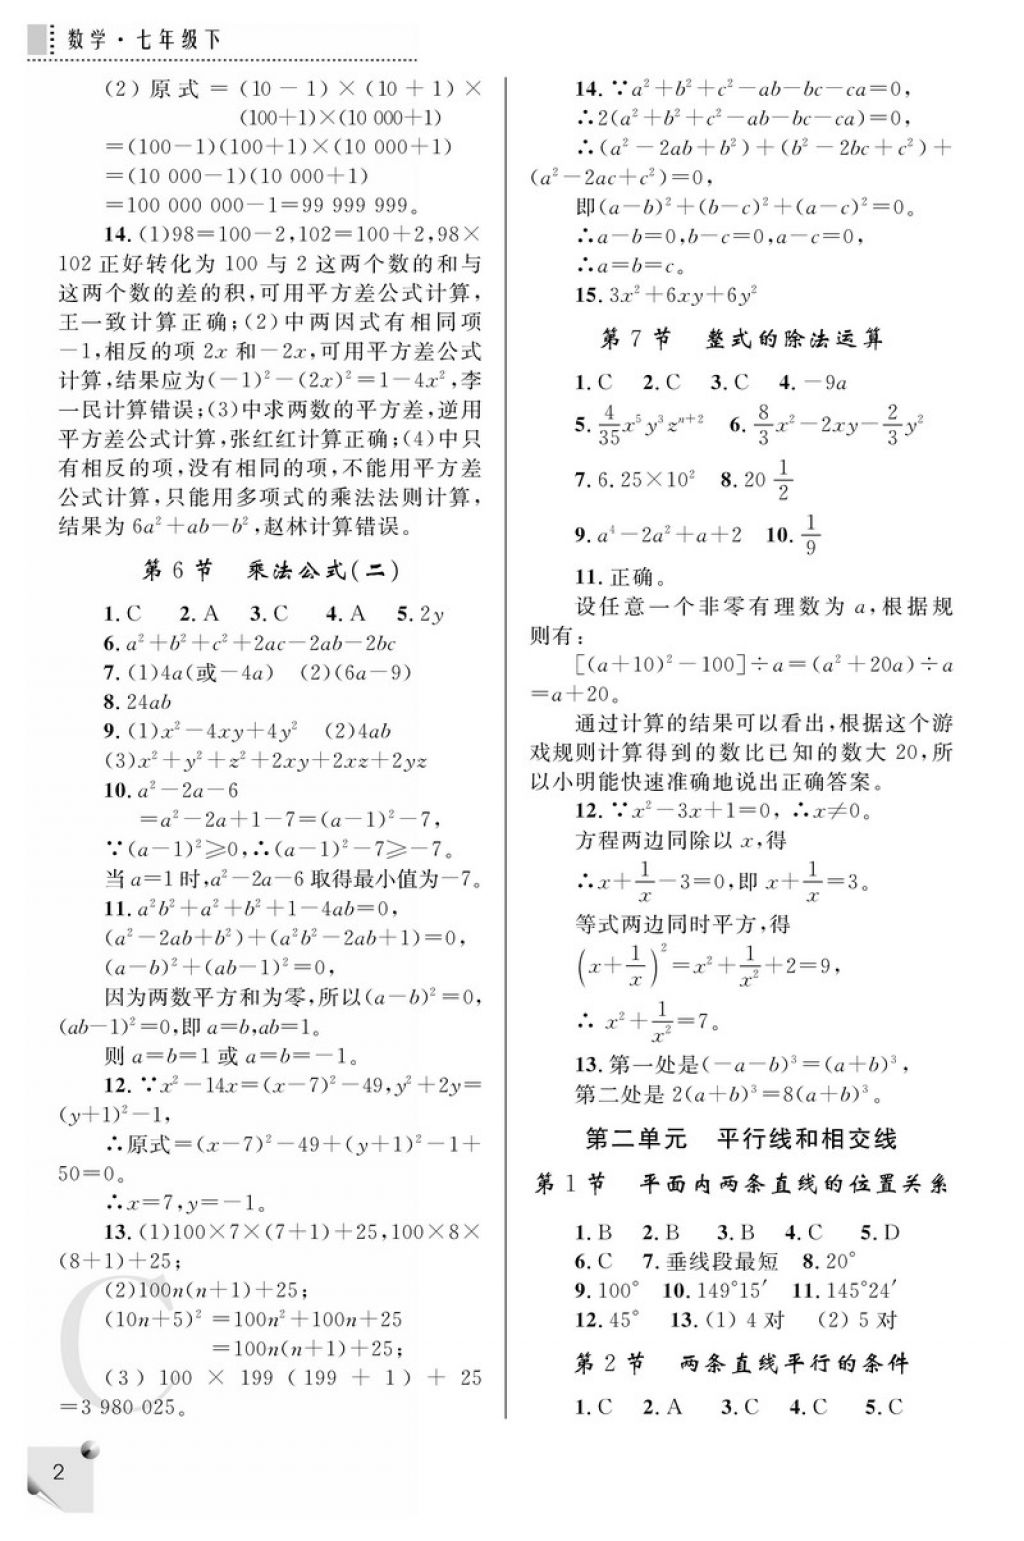 数学·七年级下
(2)原式=(10-1)×(10+1)×
(100+1)×(10 000+1)
=(100-1)(100+1)×(10 000+1)
=(10 000-1)(10 000+1)
=100 000 000-1=99 999 999。
14.(1)98=100-2,102=100+2,98×
102正好转化为100与2这两个数的和与
这两个数的差的积,可用平方差公式计算,
王一致计算正确;(2)中两因式有相同项
-1,相反的项2x和-2x,可用平方差公式
计算,结果应为(-1)²-(2x)²=1-4x²,李
一民计算错误;(3)中求两数的平方差,逆用
平方差公式计算,张红红计算正确;(4)中只
有相反的项,没有相同的项,不能用平方差
公式计算,只能用多项式的乘法法则计算,
结果为6a²+ab-b²,赵林计算错误。
第6节 乘法公式(二)
1.C 2.A 3.C 4.A 5.2y
6.a²+b²+c²+2ac-2ab-2bc
7.(1)4a(或-4a) (2)(6a-9)
8.24ab
9.(1)x²-4xy+4y² (2)4ab
(3)x²+y²+z²+2xy+2xz+2yz
10.a²-2a-6
=a²-2a+1-7=(a-1)²-7,
∵(a-1)²≥0,∴(a-1)²-7≥-7。
当a=1时,a²-2a-6取得最小值为-7。
11.a²b²+a²+b²+1-4ab=0,
(a²-2ab+b²)+(a²b²-2ab+1)=0,
(a-b)²+(ab-1)²=0,
因为两数平方和为零,所以(a-b)²=0,
(ab-1)²=0,即a=b,ab=1。
则a=b=1或a=b=-1。
12.∵x²-14x=(x-7)²-49,y²+2y=
(y+1)²-1,
∴原式=(x-7)²-49+(y+1)²-1+
50=0。
∴x=7,y=-1。
13.(1)100×7×(7+1)+25,100×8×
(8+1)+25;
(2)100n(n+1)+25;
(10n+5)²=100n²+100n+25
=100n(n+1)+25;
(3)100×199(199+1)+25
=3 980 025。
14.∵a²+b²+c²-ab-bc-ca=0,
∴2(a²+b²+c²-ab-bc-ca)=0,
∴(a²-2ab+b²)+(b²-2bc+c²)+
(a²-2ac+c²)=0,
即(a-b)²+(b-c)²+(a-c)²=0。
∴a-b=0,b-c=0,a-c=0,
∴a=b=c。
15.3x²+6xy+6y²
第7节 整式的除法运算
1.C 2.C 3.C 4.-9a
5.4/35x⁵y³zⁿ⁺² 6.8/3x²-2xy-2/3y²
7.6.25×10² 8.20 1/2
9.a⁴-2a²+a+2 10.1/9
11.正确。
设任意一个非零有理数为a,根据规
则有:
[(a+10)²-100]÷a=(a²+20a)÷a
=a+20。
通过计算的结果可以看出,根据这个游
戏规则计算得到的数比已知的数大20,所
以小明能快速准确地说出正确答案。
12.∵x²-3x+1=0,∴x≠0。
方程两边同除以x,得
∴x+1/x-3=0,即x+1/x=3。
等式两边同时平方,得
(x+1/x)²=x²+1/x²+2=9,
∴x²+1/x²=7。
13.第一处是(-a-b)³=(a+b)³,
第二处是2(a+b)³=8(a+b)³。
第二单元 平行线和相交线
第1节 平面内两条直线的位置关系
1.B 2.B 3.B 4.C 5.D
6.C 7.垂线段最短 8.20°
9.100° 10.149°15′ 11.145°24′
12.45° 13.(1)4对 (2)5对
第2节 两条直线平行的条件
1.C 2.A 3.C 4.C 5.C
2